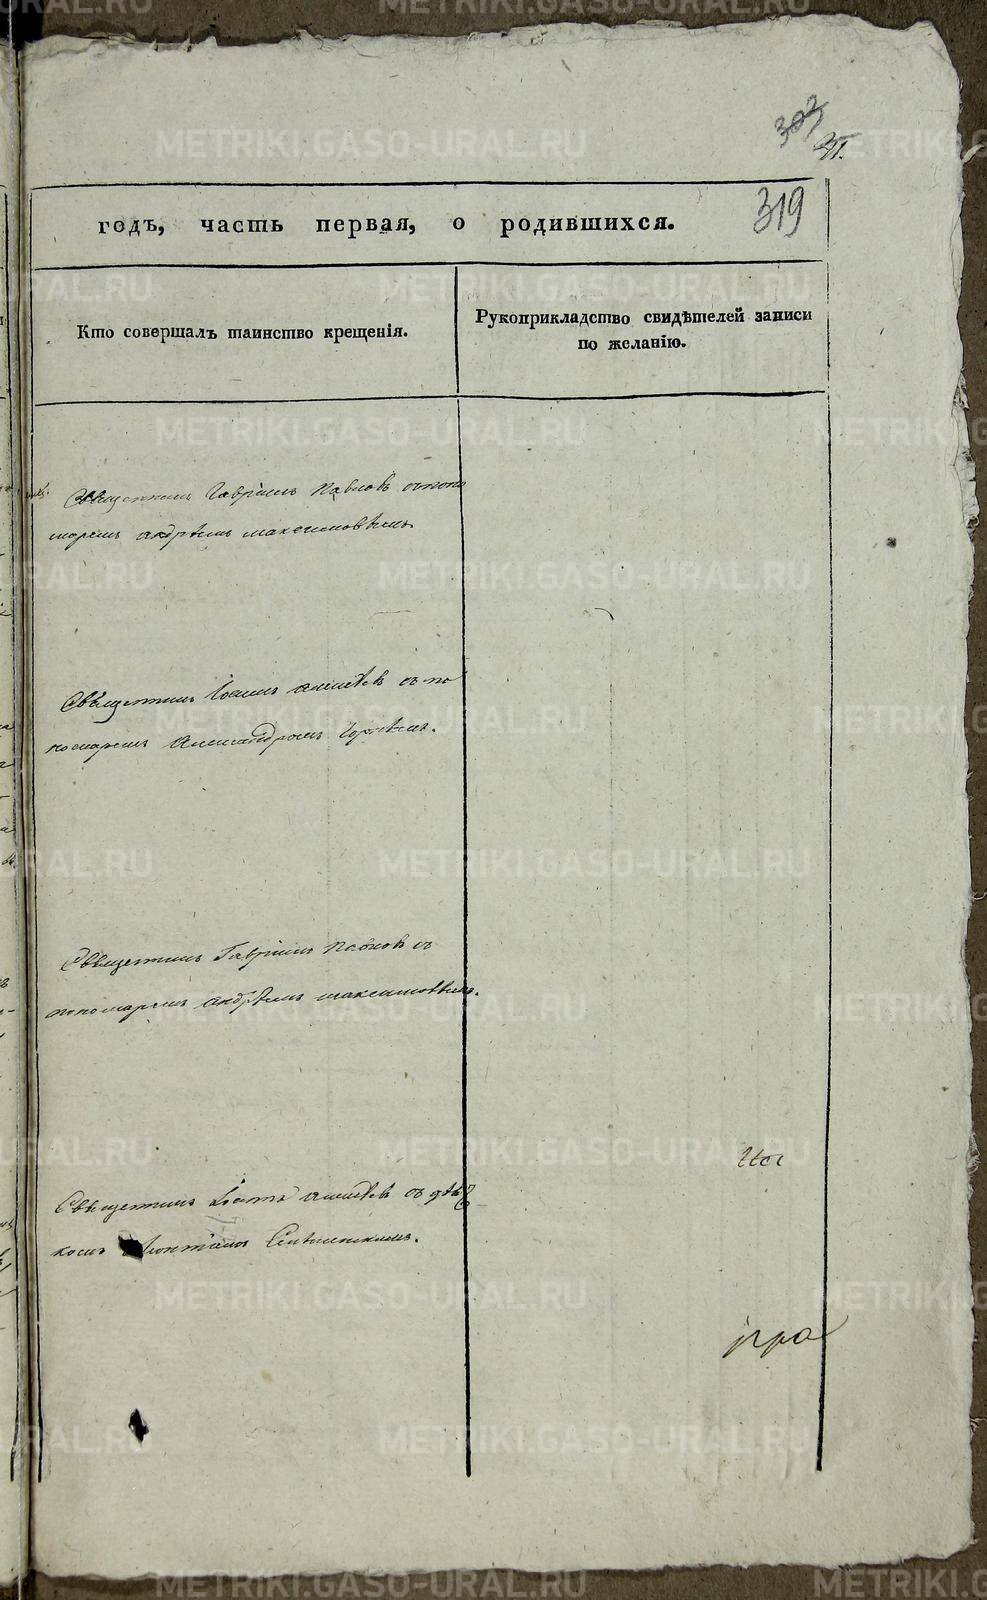 303
31.
319
годъ, часть первая, о родившихся.
Кто совершалъ таинство крещенія.
Рукоприкладство свидѣтелей записи
по желанію.
Священникъ Гавріилъ Павловъ съ поно
маремъ Андрѣемъ Максимовымъ.
Священникъ Іоаннъ съ по
номаремъ Александромъ
Священникъ Гавріилъ Павловъ съ
пономаремъ Андрѣемъ Максимовымъ.
Священникъ Іоаннъ съ дьяч
комъ
METRIKI.GASO-URAL.RU